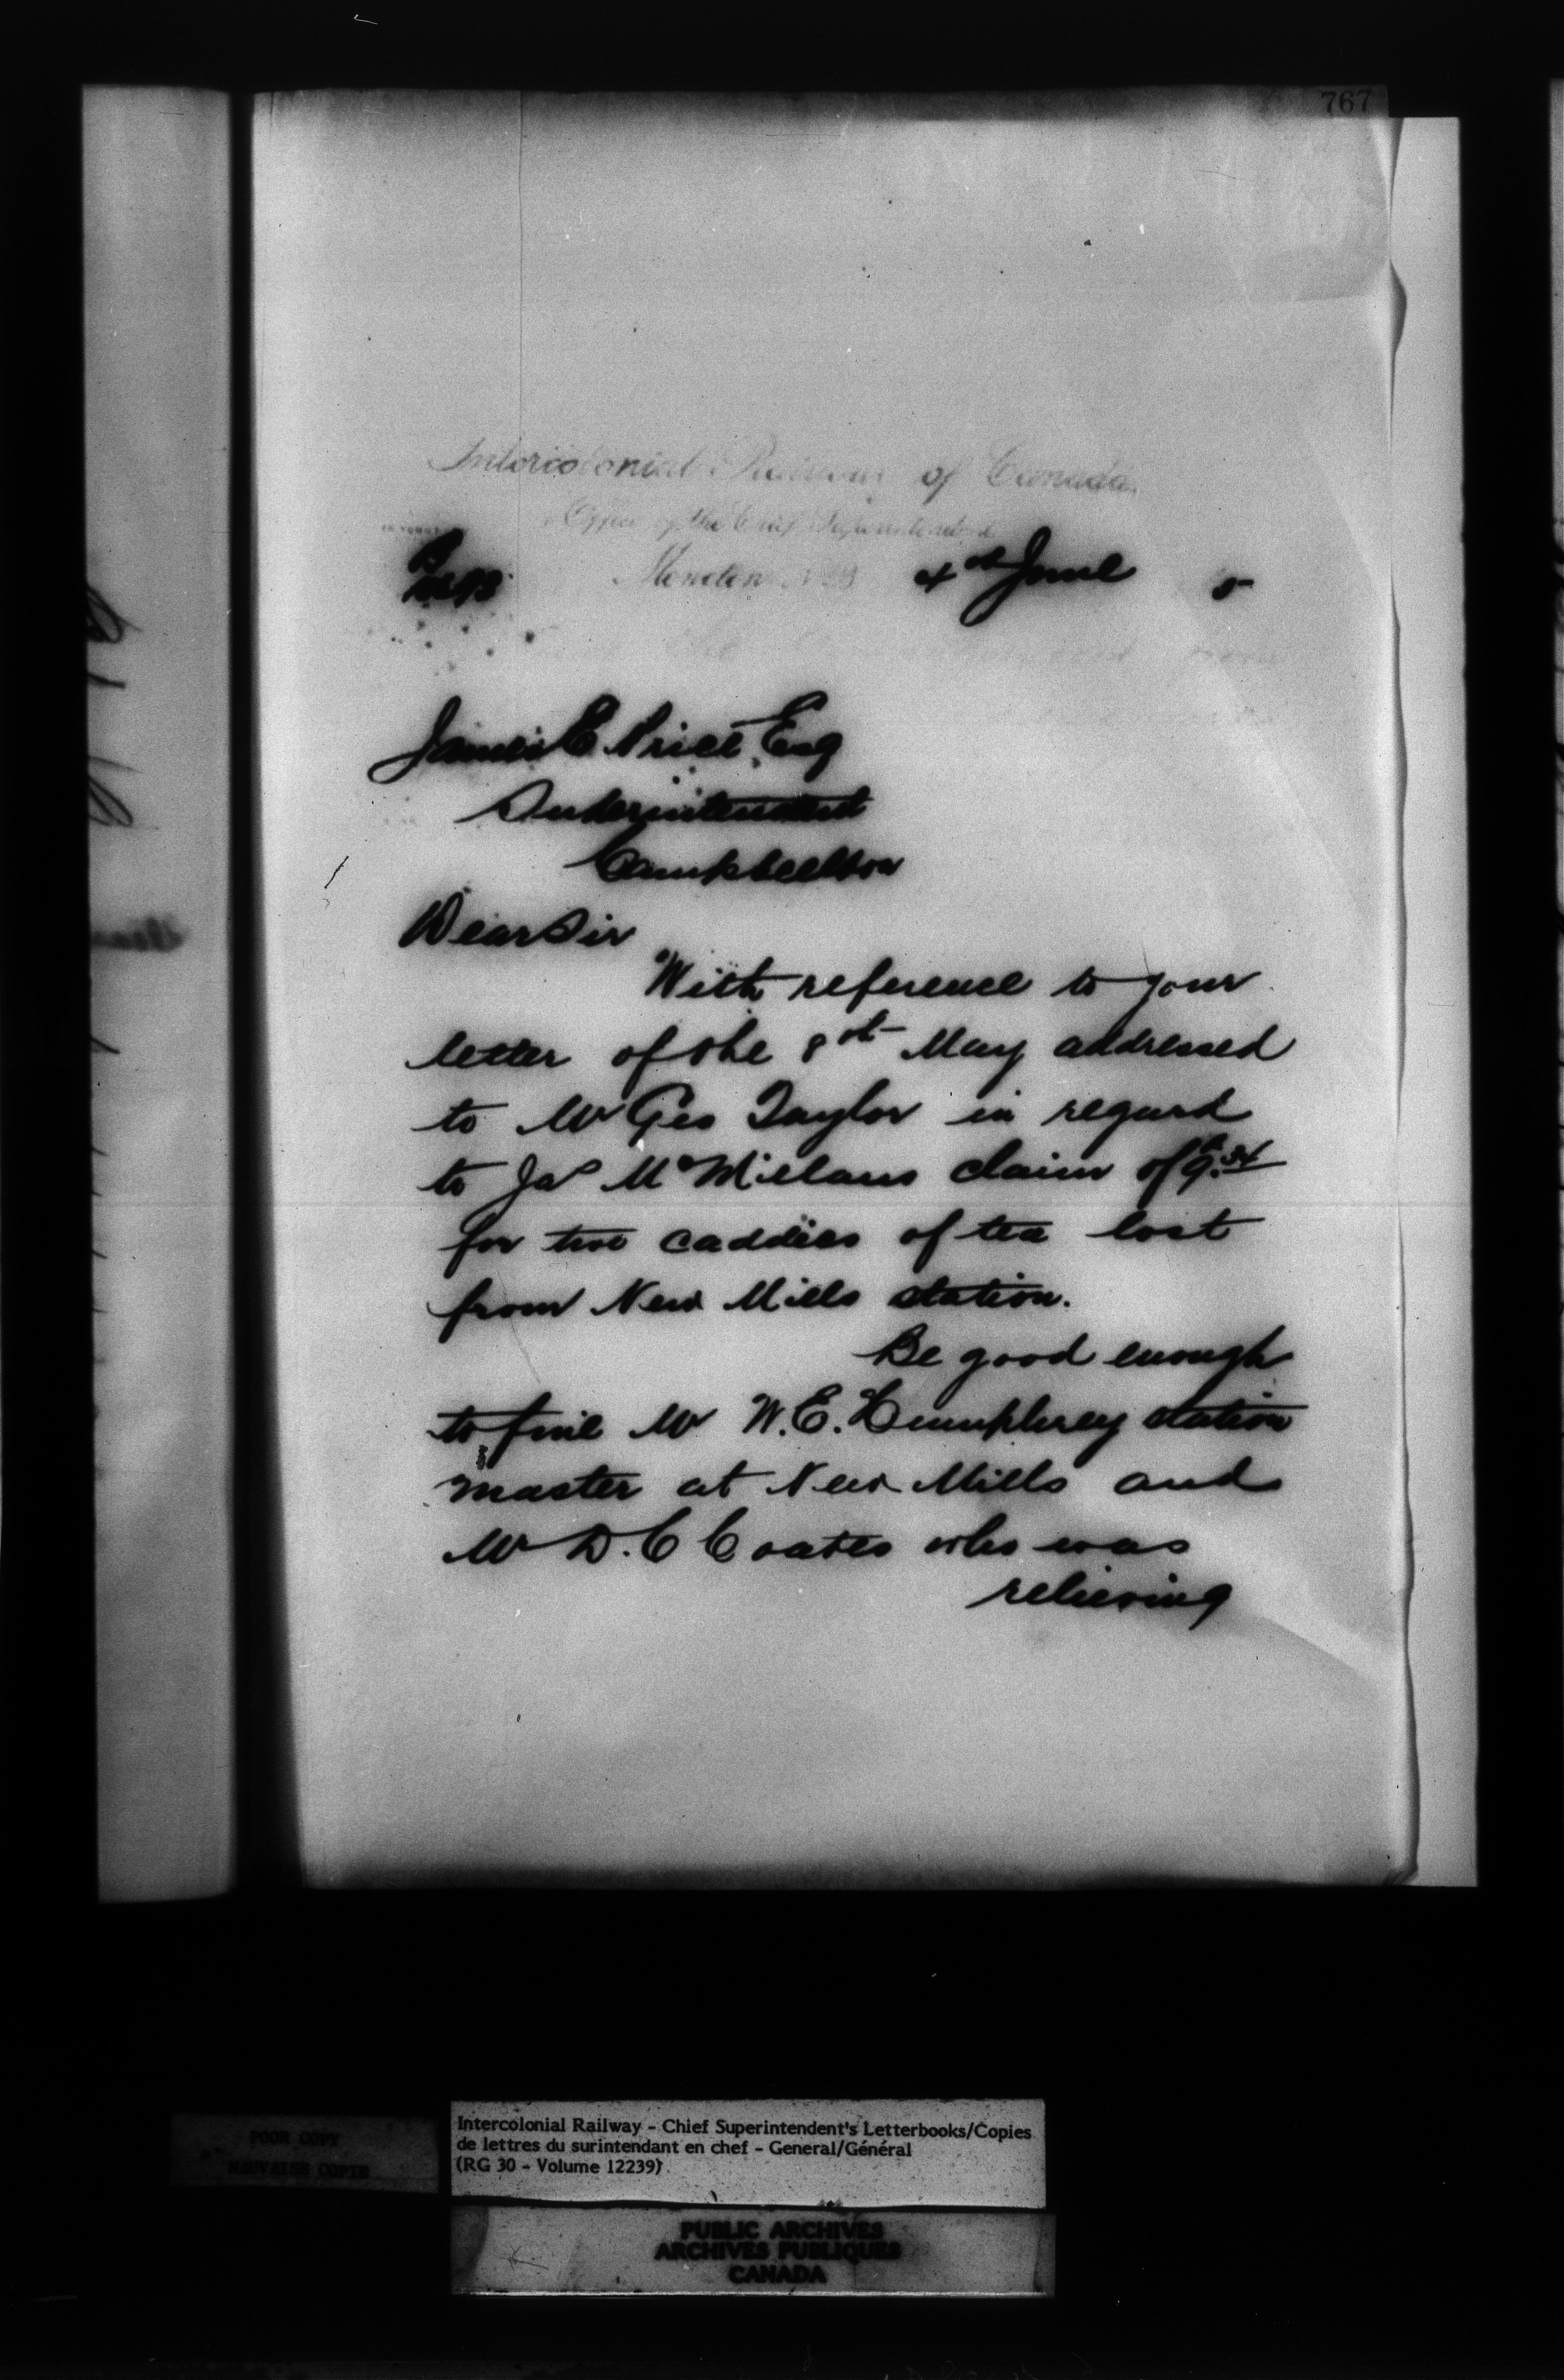 767
Intercolonial Railway of Canada.
Office of the Chief Superintendent
Moncton N.B. 4th June 5
James E Price Esq
Superintendent
Campbellton
Dear Sir
With reference to your
letter of the 8th May addressed
to Mr Geo Taylor in regard
to Jas McMillans claim of $9.34
for two caddies of tea lost
from New Mills station.
Be good enough
to fine Mr W.E. Humphrey station
master at New Mills and
Mr D. C Coates who was
relieving
POOR COPY
MAUVAISE COPIE
Intercolonial Railway - Chief Superintendent's Letterbooks/Copies
de lettres du surintendant en chef - General/Général
(RG 30 - Volume 12239)
PUBLIC ARCHIVES
ARCHIVES PUBLIQUES
CANADA